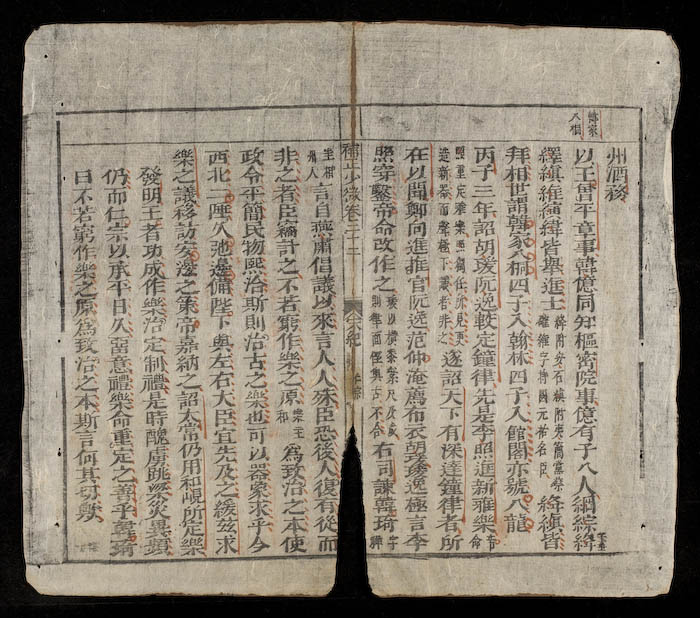 傳家
人桐
州酒務
以王曾平章事韓億同知樞密院事億有子八人綱綜絳
繹縝維緯緬皆舉進士
絳縝皆
拜相世謂韓家八桐四子入翰林四子入館閣亦號八龍
丙子三年詔胡瑗阮逸較定鐘律先是李照進新雅樂
遂詔天下有深達鐘律者所
在以聞鄭向進推官阮逸范仲淹薦布衣胡瑗逸極言李
照穿鑿帝命改作之
瑗以橫黍累尺
則律
徑與古不合
右司諫韓琦
字
稚圭相
州人
言自燕肅倡議以來言人人殊臣恐後人復有從而
非之者臣竊計之不若窮作樂之原
樂主
和
為致治之本使
政令平簡民物熙洽斯則治古之樂也可以器象求乎今
西北二陲久弛邊備陛下與左右大臣宜先及之緩茲求
樂之議移訪安邊之策帝嘉納之詔太常仍用和峴所定樂
發明王者功成作樂治定制禮是時醜虜跳梁災異頻
仍而仁宗以承平日久留意禮樂命重定之善乎韓琦
曰不若窮作樂之原為致治之本斯言何其切歟